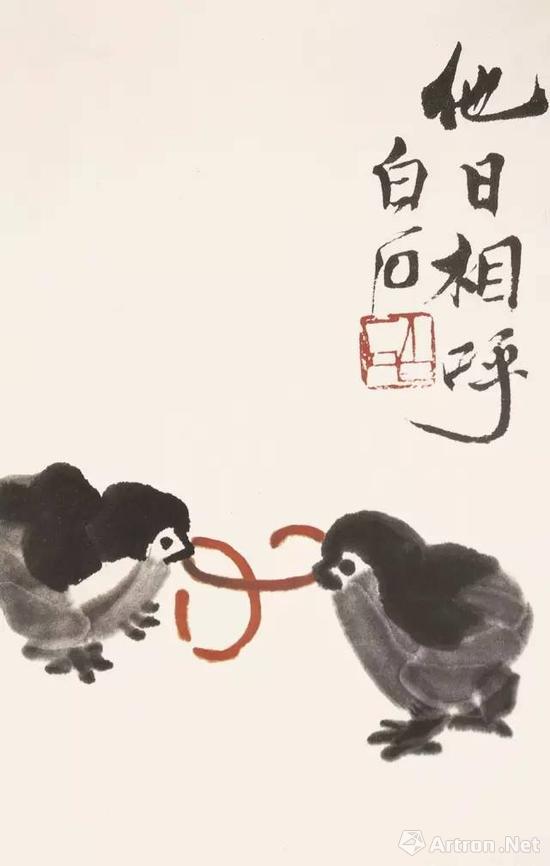 他日相呼
白石
Artron.Net